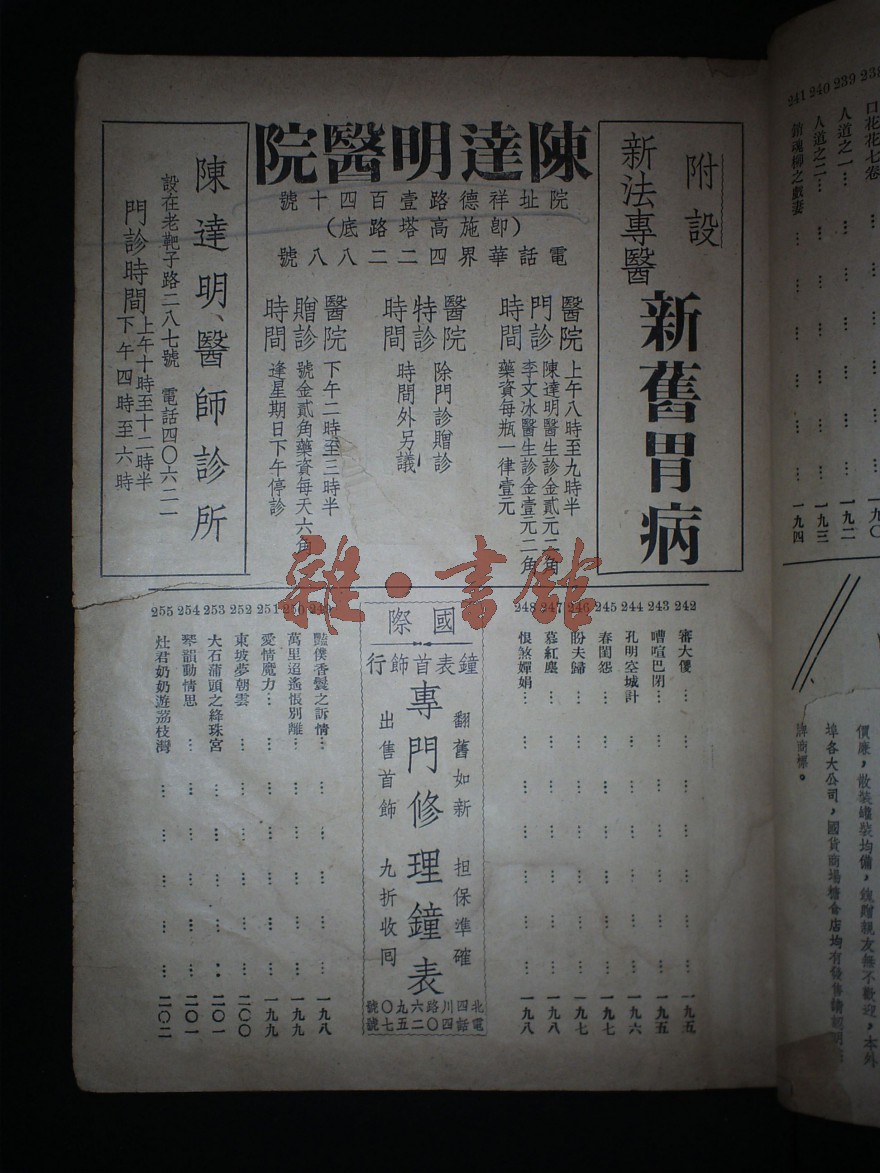 陳達明醫院
院址祥德路壹百四十號
(卽施高塔路底)
電話華界四二二八八號
附設
新法專醫
新舊胃病
醫院門診時間
上午八時至九時半
陳達明醫生診金貳元二角
李文冰醫生診金壹元二角
藥資每瓶一律壹元
醫院特診時間
除門診贈診
時間外另議
醫院贈診時間
下午二時至三時半
號金貳角藥資每天六角
逢星期日下午停診
陳達明、醫師診所
設在老靶子路二八七號 電話四〇六二一
門診時間 上午十時至十二時半
下午四時至六時
242 審大㑋 … … … … … 一九五
243 嘈喧巴閉… … … … … 一九五
244 孔明空城計 … … … … 一九六
245 春閨怨 … … … … … 一九七
246 盼夫歸 … … … … … 一九七
247 慕紅塵… … … … … 一九八
248 恨煞嬋娟… … … … … 一九八
國際
鐘表首飾行
翻舊如新 担保準確
專門修理鐘表
出售首飾 九折收囘
北四川路六九〇號
電話四〇二五七號
249 豔僕香鬟之訴情… … … … … 一九八
250 萬里追遙悵別離… … … … … 一九九
251 愛情魔力… … … … … 一九九
252 東坡夢朝雲 … … … … 二〇〇
253 大石蒲頭之絳珠宮 … … … … 二〇一
254 琴韻動情思 … … … … … 二〇一
255 灶君奶奶遊荔枝灣 … … … … 二〇二
238 口花花七卷 … … … … … 一九〇
239 人道之一… … … … … 一九二
240 人道之二… … … … … 一九三
241 銷魂柳之戲妻 … … … … … 一九四
價廉，散裝罐裝均備，餽贈親友無不歡迎，本外
埠各大公司，國貨商場糖食店均有發售請認明
牌商標。
雜·書館